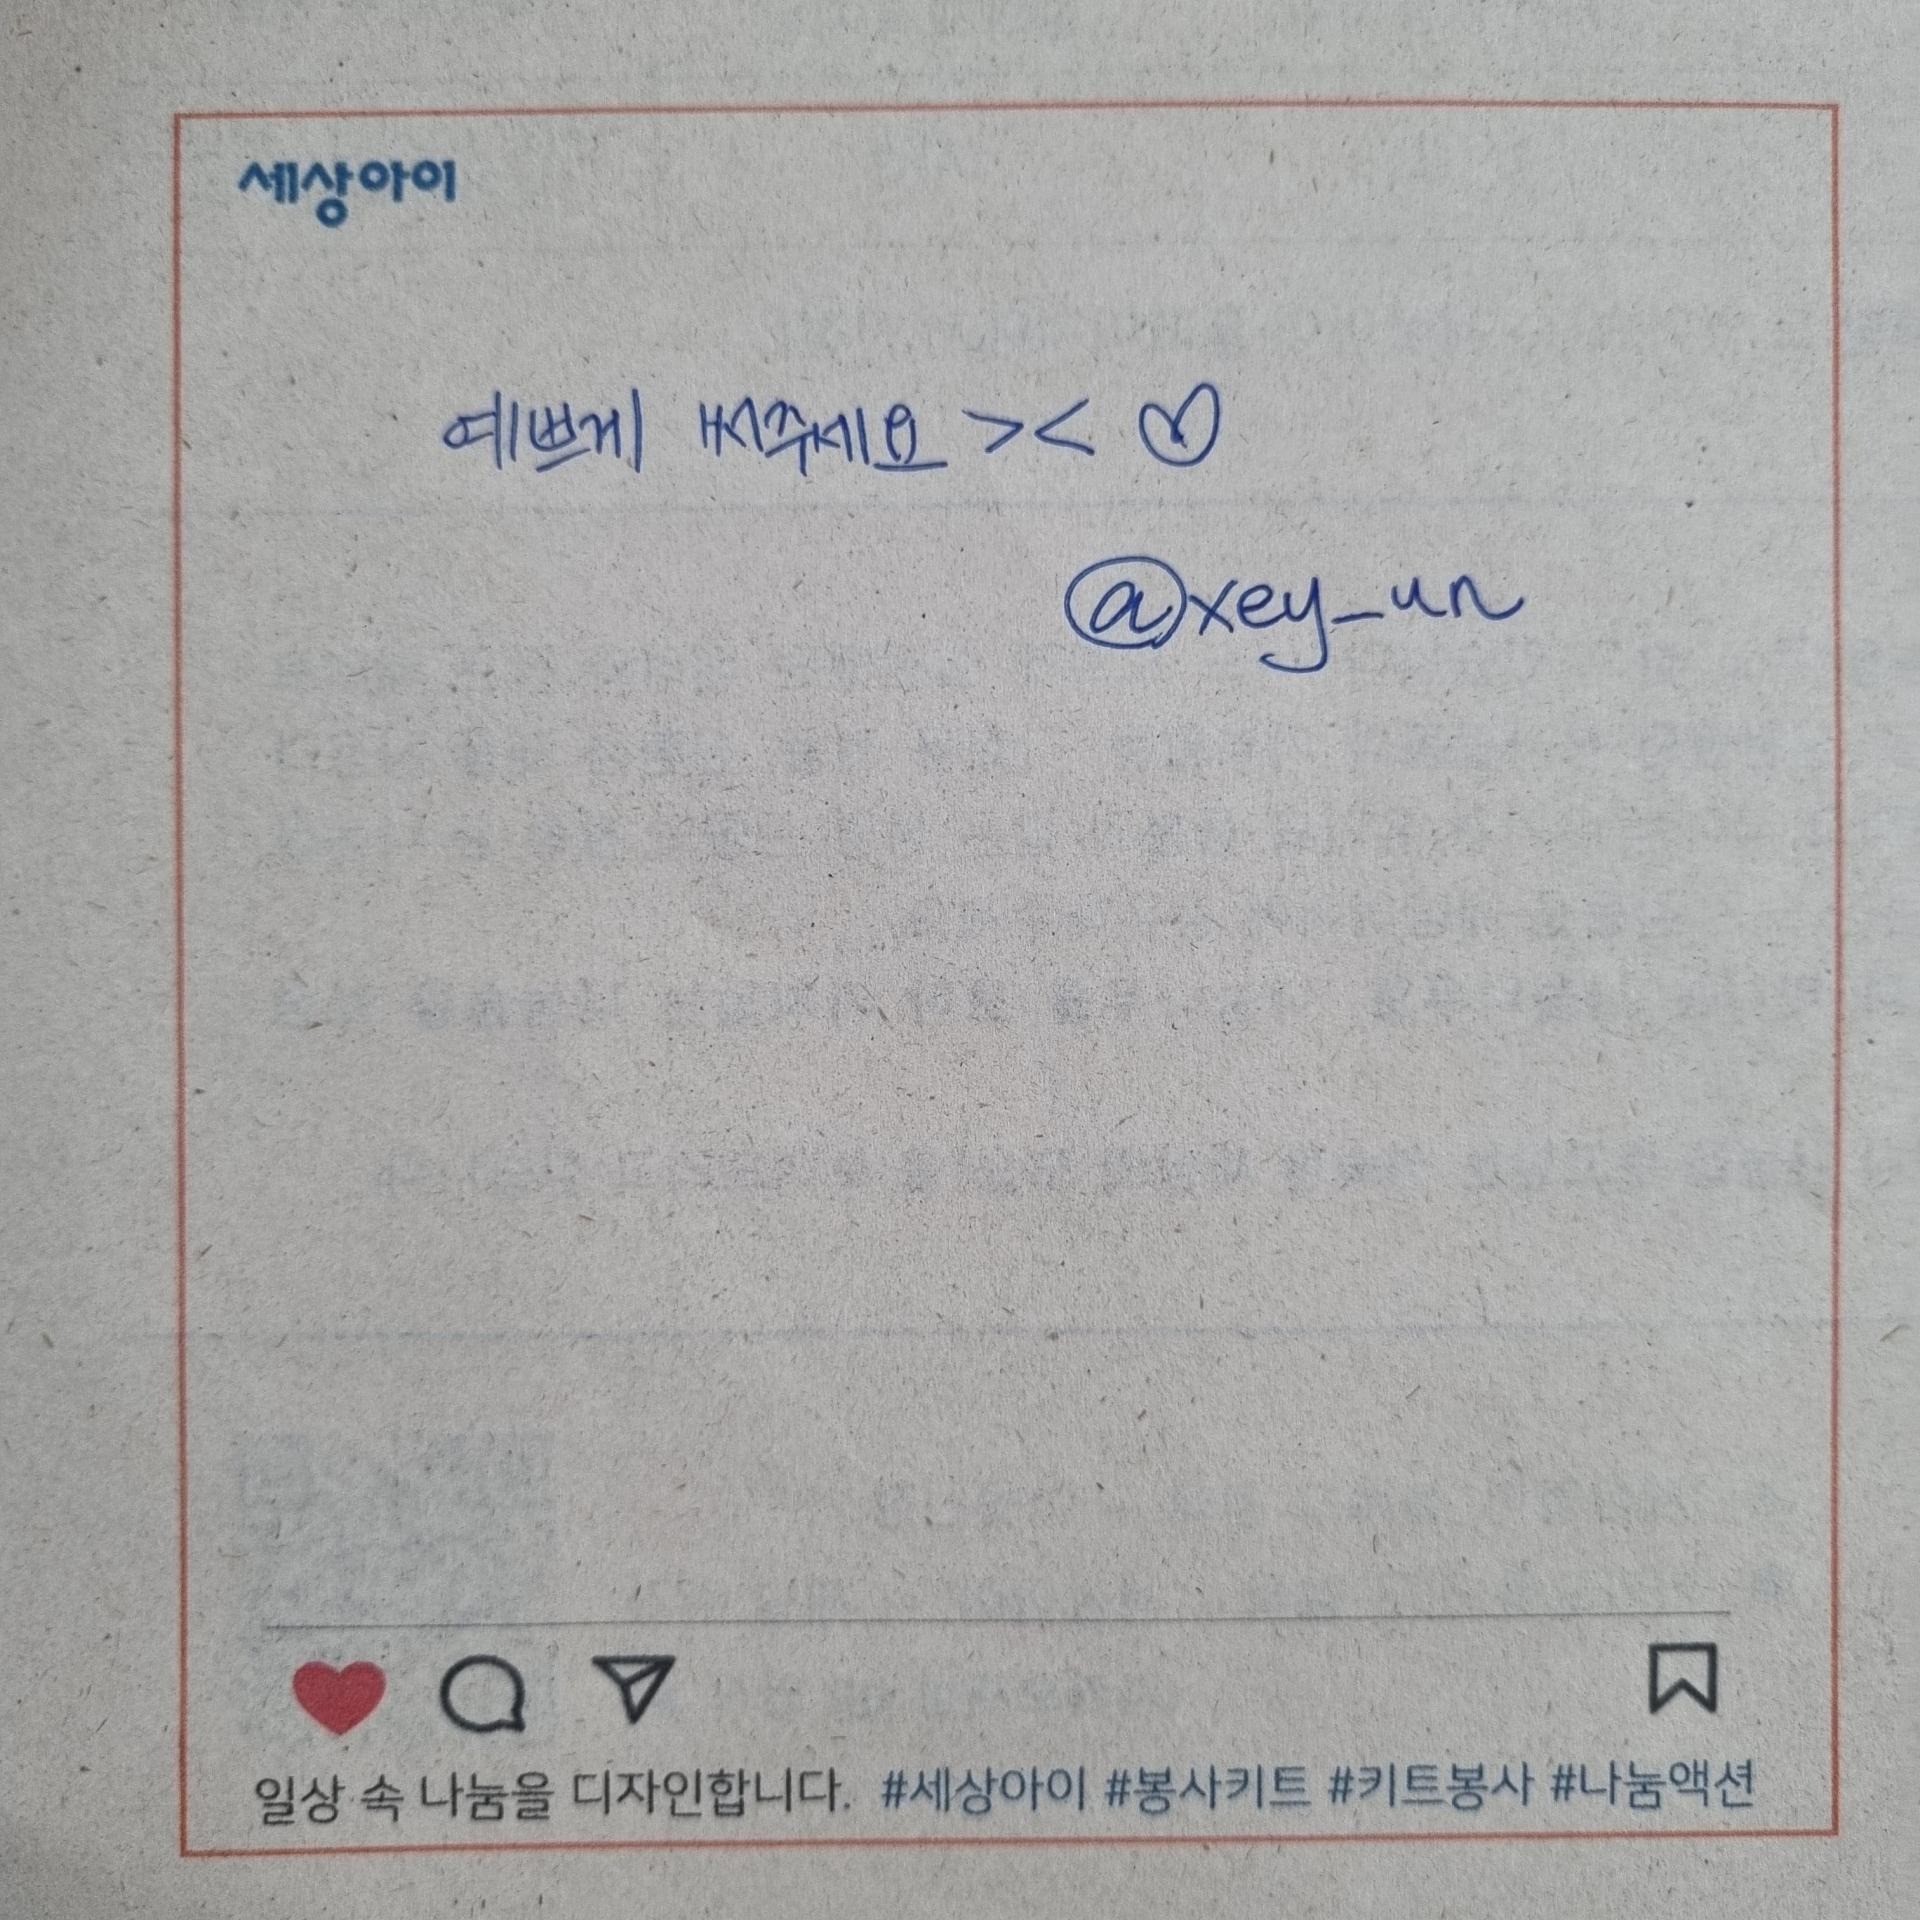 세상아이
예쁘게 써주세요 >< ♡
@xey_un
일상 속 나눔을 디자인합니다. #세상아이 #봉사키트 #키트봉사 #나눔액션